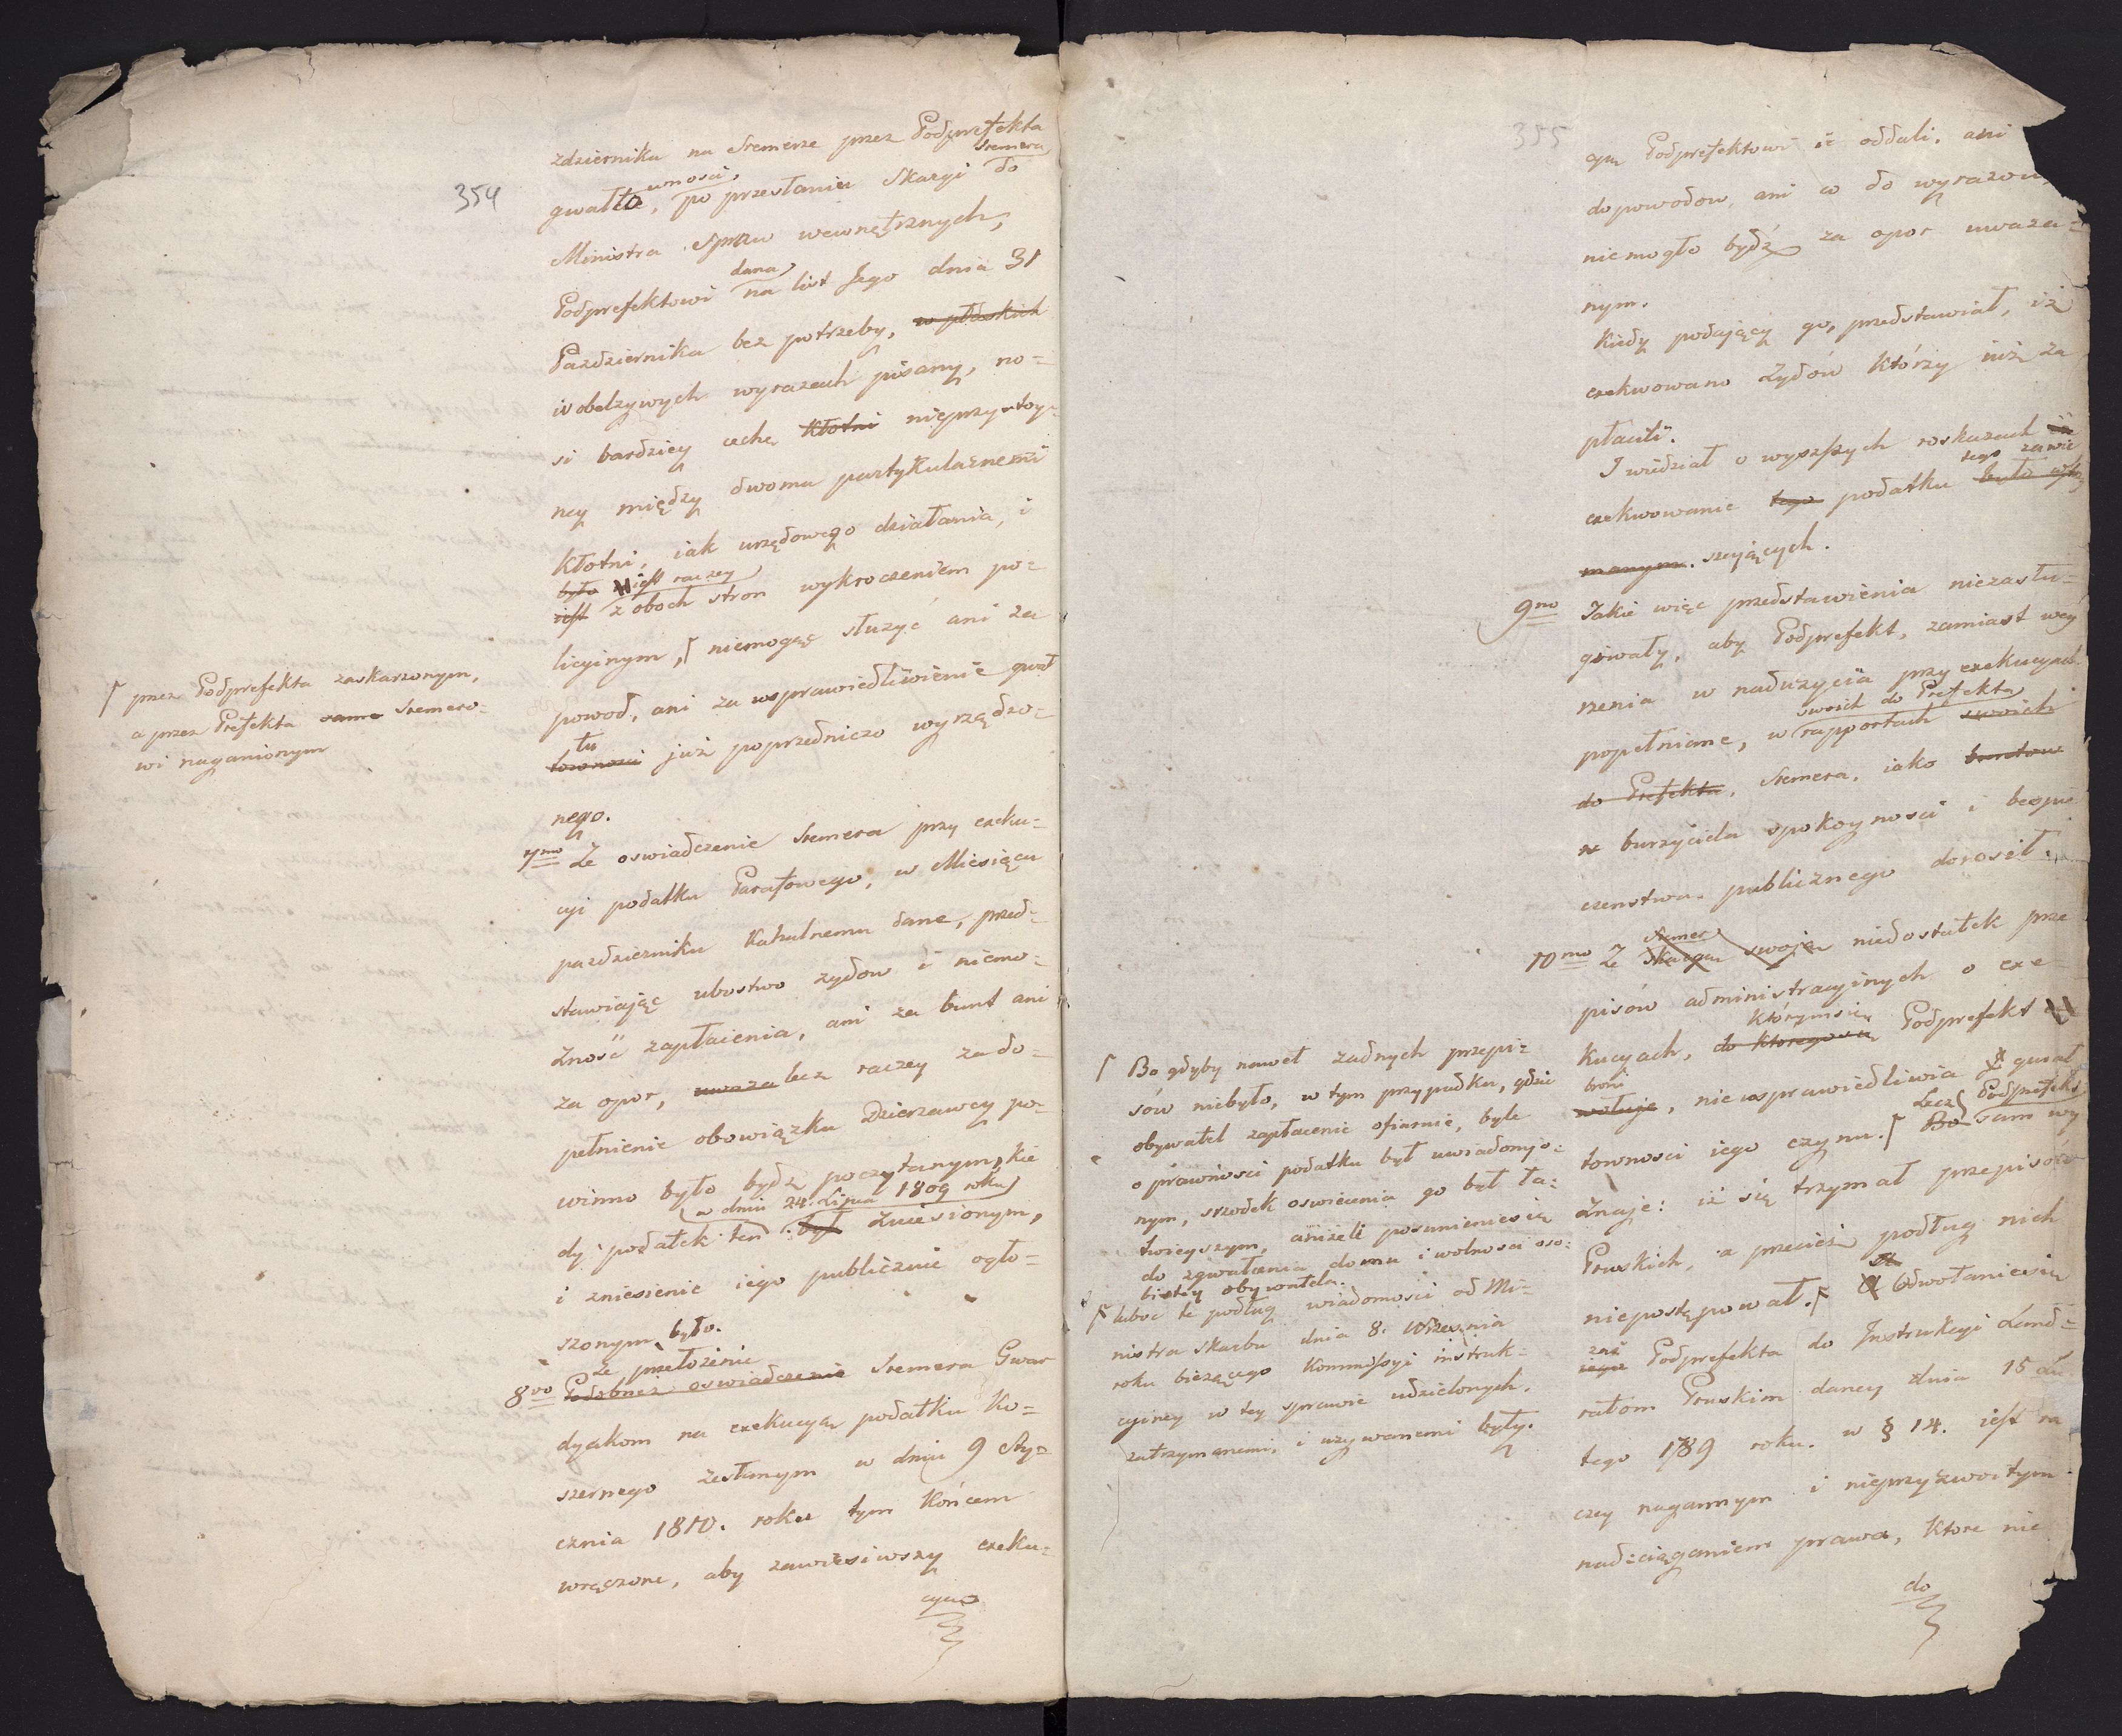 354
zdziernika na Sremerze przez Podprefekta
Sremera
wnosci,
gwałto, po przesłaniu Skargi do
Ministra Spraw wewnętrznych,
dana
Podprefektowi na list Jego dnia 31
Pazdziernika bez potrzeby, w płaskich
iv obelzywych wyrazach pisany, no-
si bardziey cechę Kłotni nieprzystoy-
ney między dwoma partykularnemi
Kłotni, iak urzędowego działania, i
było iest raczey
iest z oboch stron wykroczeniem po-
licyinym, niemogąc słuzyć ani za
powod, ani za usprawiedliwienie gwał
tu
townosci już poprzedniczo wyrządzo-
nego.
przez Podprefekta zaskarzonym,
a przez Prefekta samo Sremero-
wi naganionym
7mo Ze oswiadczenie Sremera przy exeku-
cyi podatku Parafowego, w Miesiącu
pazdzierniku Kahalnemu dane, przed-
stawiając ubostwo zydow i niemo-
żność zapłacenia, ani za bunt ani
za opor, uwaza lecz raczey za do-
pełnienie obowiązku Dzierzawcy po-
winno było bydz poczytanym, kie
w dniu 24. Lipca 1809 roku
dy podatek ten był zniesionym,
i zniesienie iego publicznie ogło-
szonym było.
Ze przełożenie
8vo Podobnież oswiadczenie Sremera Gwar
dyakom na exekucyą podatku Ko-
szernego zesłanym w dniu 9 Sty-
cznia 1810. roku tym Końcem
wręczone, aby zawiesiwszy exeku-
cyią
355
cyą Podprefektowi ie oddali, ani
do powodow, ani co do wyrazow,
niemogło bydź za opor uwaza-
nym.
Kiedy podaiący go, przedstawiał, iż
exekwowano Zydów którzy iuż za
płacili.
I wiedział o wyzszych roskazach
tego zawie
exekwowanie tego podatku
manym. szaiących.
9no Jakie więc przedstawienia niezasłu-
giwały, aby Podprefekt, zamiast wey
rzenia w nadużycia przy exekucyach
swoich do Prefekta
popełniane, w rapportach swoich
do Prefekta, Sremera, iako
burzyciela spokoyności i bezpie
czenstwa publicznego donosił.
Sremer
10mo Ze Skargą swoją niedostatek prze
pisów administracyinych o exe-
Którym się
kucyach, do ktorego się Podprefekt
broni
wołuje, nieusprawiedliwia gwał
Lecz Podprefekt
townosci iego czynu. Bo sam wy
Znaje: iż się trzymał przepisow
Pruskich, a przecież podług nich
niepostępował. Odwołanie się
zaś
iego Podprefekta do Instrukcyi Land-
ratom Pruskim daney dnia 15 Lu
tego 1789 roku. w § 14. iest ra
czey nagannym i nieprzyzwoitym
nadciąganiem prawa, ktore nie
do
Bo gdyby nawet zadnych przepi-
sów niebyło, w tym przypadku, gdzie
obywatel zapłacenie ofiaruie, byle
o prawności podatku był uwiadomio-
nym, srzodek oswiecenia go był ła-
twieyszym, anizeli posunienie się
do zgwałcenia domu i wolnosci oso-
bistey obywatela.
luboc te podług wiadomosci od Mi-
nistra Skarbu dnia 8. Września
roku biezącego Kommissyi instruk-
cyiney w tey sprawie udzielonych,
zatrzymanemi i uzywanemi były.